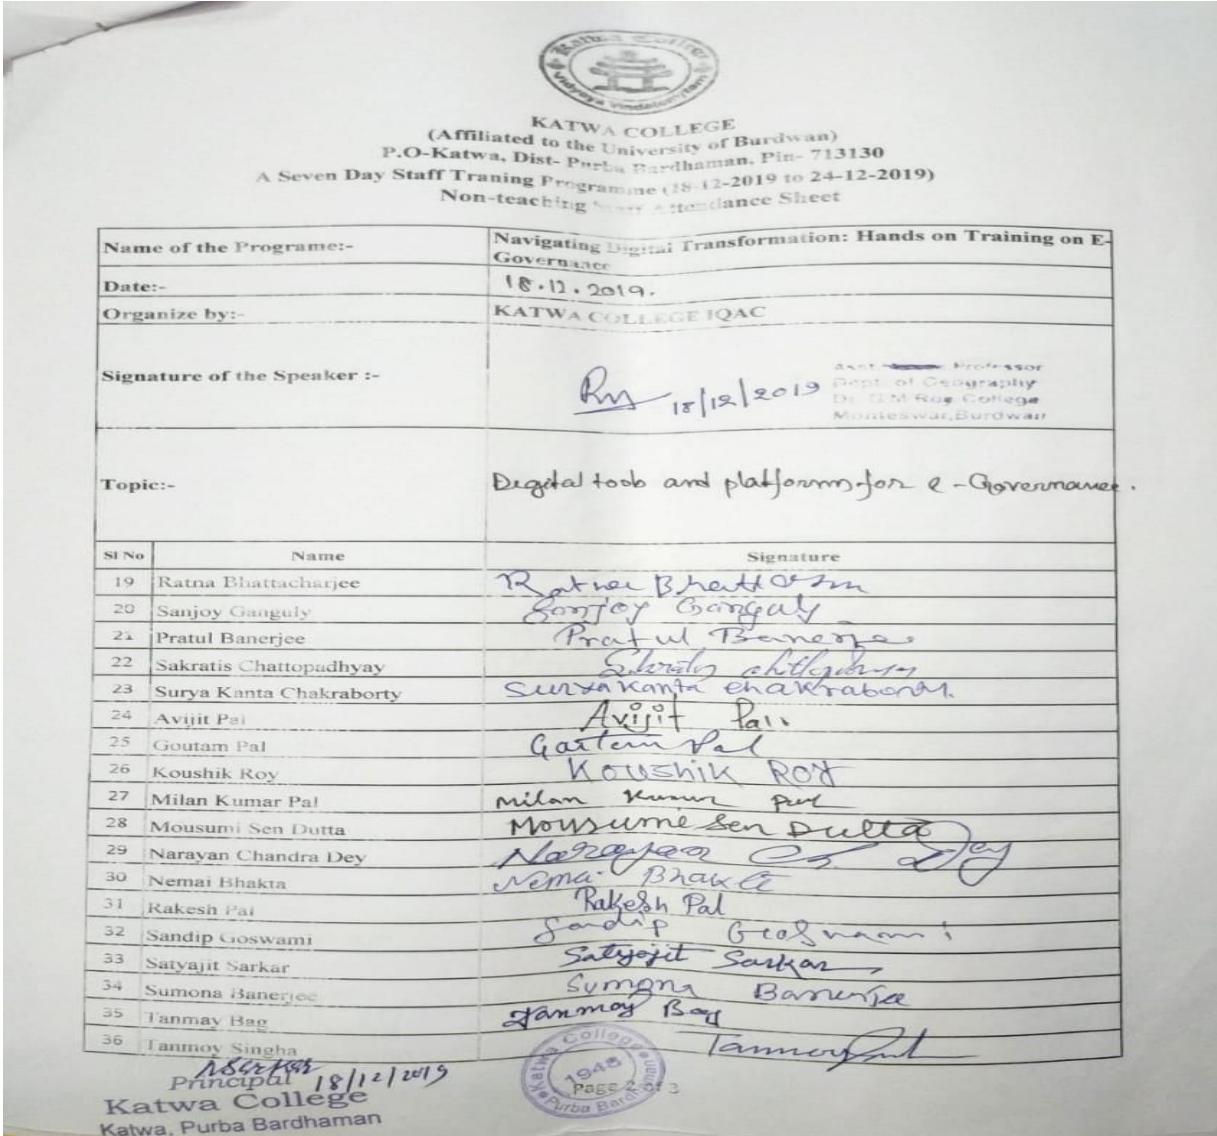 Katwa College
Vidyaya Vindatehmrtam
KATWA COLLEGE
(Affiliated to the University of Burdwan)
P.O-Katwa, Dist- Purba Bardhaman, Pin- 713130
A Seven Day Staff Traning Programme (18-12-2019 to 24-12-2019)
Non-teaching Staff Attendance Sheet
Name of the Programe:- Navigating Digital Transformation: Hands on Training on E-
Governance
Date:- 18.12.2019.
Organize by:- KATWA COLLEGE IQAC
Signature of the Speaker :- 18/12/2019
Asst. Professor
Dept. of Geography
Dr. G.M Roy College
Monteswar,Burdwan
Topic:- Degital tools and platforms for e-Governance.
Sl No Name Signature
19 Ratna Bhattacharjee Ratna
20 Sanjoy Ganguly Sanjoy Ganguly
21 Pratul Banerjee Pratul Banerjee
22 Sakratis Chattopadhyay
23 Surya Kanta Chakraborty Surya Kanta Chakraborty.
24 Avijit Pal Avijit Pal.
25 Goutam Pal Goutam Pal
26 Koushik Roy Koushik Roy
27 Milan Kumar Pal Milan Kumar Pal
28 Mousumi Sen Dutta Mousume Sen Dutta
29 Narayan Chandra Dey Narayan Ch. Dey
30 Nemai Bhakta Nemai Bhakta
31 Rakesh Pal Rakesh Pal
32 Sandip Goswami Sandip Goswami
33 Satyajit Sarkar Satyajit Sarkar
34 Sumona Banerjee Sumona Banerjee
35 Tanmay Bag Tanmay Bag
36 Tanmoy Singha Tanmoy
18/12/2019
Principal
Katwa College
Katwa, Purba Bardhaman
Katwa College
1948
Purba Bardhaman
Page 2 of 3